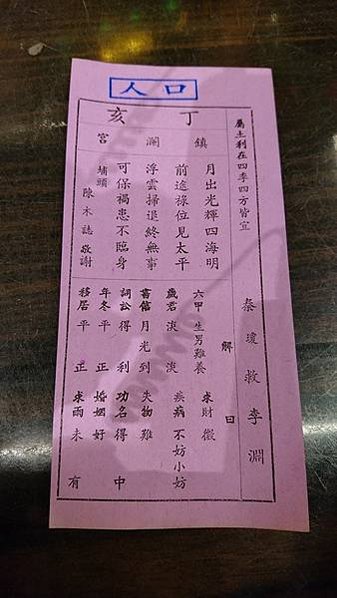 人口
丁亥
屬土利在四季四方皆宜
秦瓊救李淵
鎮瀾宮
月出光輝四海明
前途祿位見太平
浮雲掃退終無事
可保禍患不臨身
埔頭 陳木誌敬謝
解曰
六甲 生男難養 求財微
歲君 淡淡 疾病 不妨小妨
書信 月光到 失物難
詞訟 得利 功名得中
年冬 平正 婚姻好
移居 平正 求雨未有